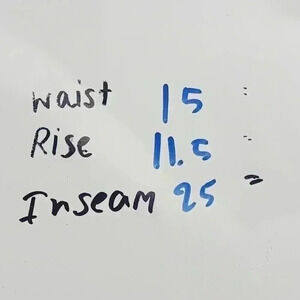 Waist 15 :
Rise 11.5 :
Inseam 25 =